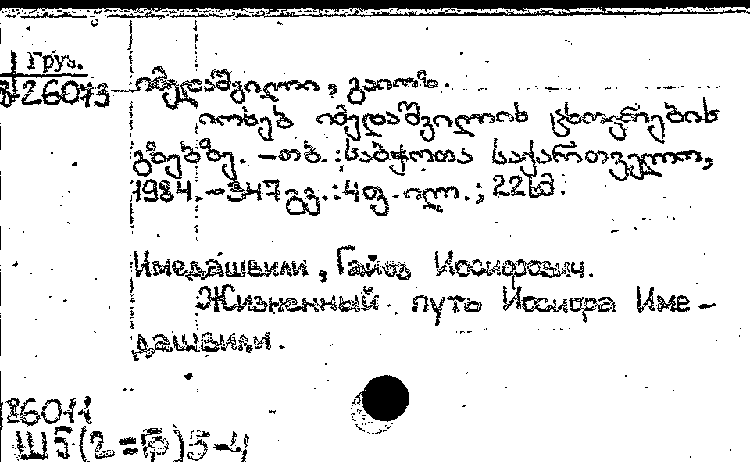 Груз.
26073 იმედაშვილი, გაიოზ.
იოსებ იმედაშვილის ცხოვრების
გზებზე. – თბ.: საბჭოთა საქართველო,
1984. – 347 გვ.: 4 ფ. ილ.; 22 სმ.
Имедашвили, Гайоз Иосифович.
Жизненный путь Иосифа Име-
дашвили.
26011
Ш5(2=Г)5-4